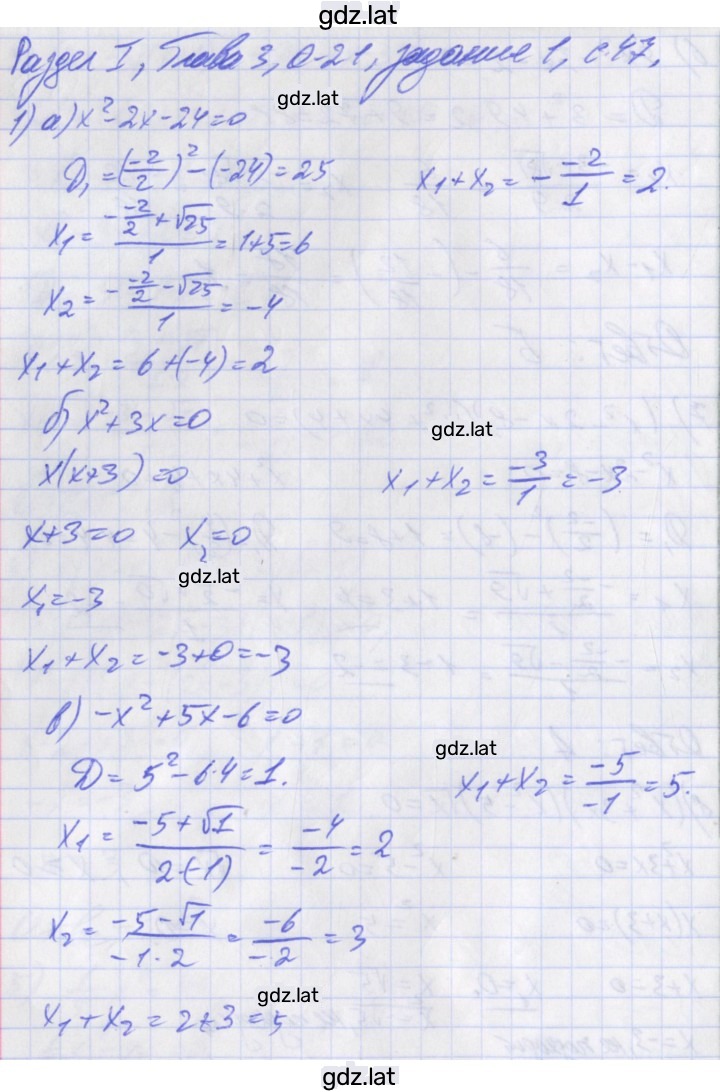 gdz.lat
Раздел I, Глава 3, О-21, задание 1, с.47.
gdz.lat
1) а) x² - 2x - 24 = 0
D₁ = (-2/2)² - (-24) = 25
x₁ + x₂ = - -2/1 = 2.
x₁ = (- -2/2 + √25)/1 = 1+5 = 6
x₂ = (- -2/2 - √25)/1 = -4
x₁ + x₂ = 6 + (-4) = 2
б) x² + 3x = 0
gdz.lat
x(x+3) = 0
x₁ + x₂ = -3/1 = -3
x+3 = 0 x₂ = 0
gdz.lat
x₁ = -3
x₁ + x₂ = -3+0 = -3
в) -x² + 5x - 6 = 0
gdz.lat
D = 5² - 6·4 = 1.
x₁ + x₂ = -5/-1 = 5.
x₁ = (-5 + √1)/(2·(-1)) = -4/-2 = 2
x₂ = (-5 - √1)/(-1·2) = -6/-2 = 3
gdz.lat
x₁ + x₂ = 2+3 = 5
gdz.lat